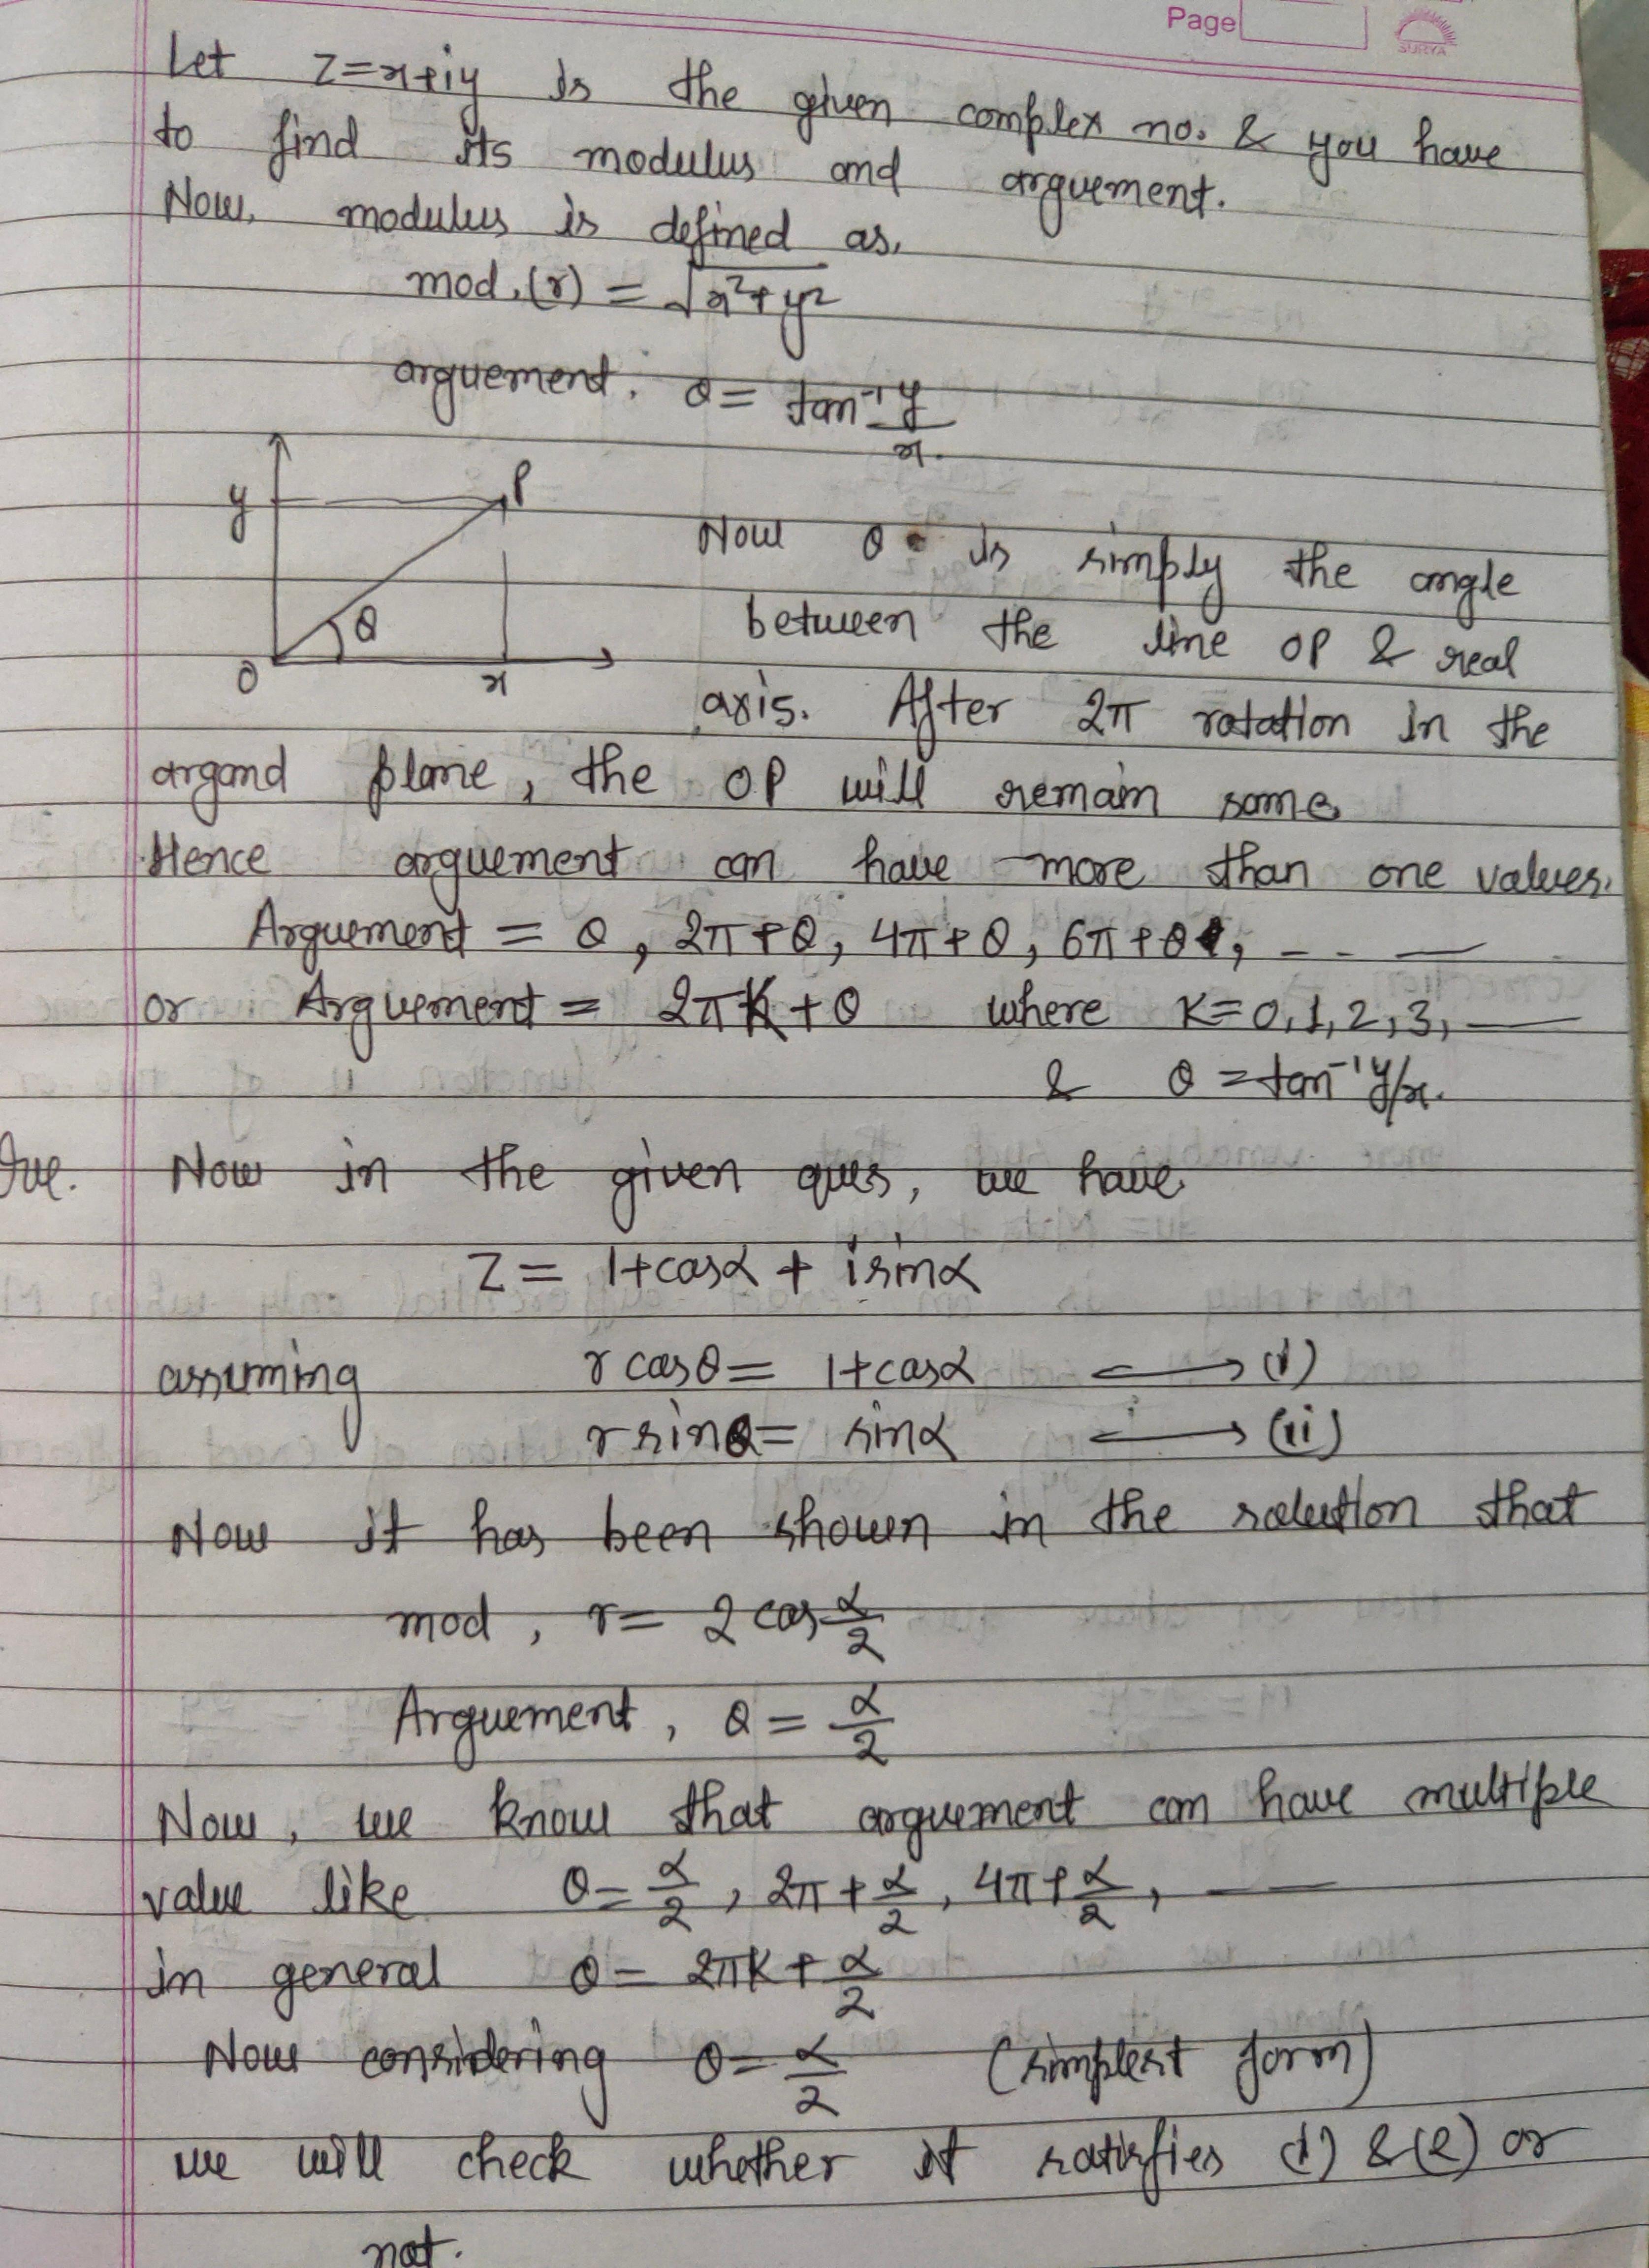 Page
SURYA
Let z=x+iy is the given complex no. & you have
to find its modulus and arguement.
Now, modulus is defined as,
mod, (r) = √x²+y²
arguement, θ = tan⁻¹ y/x.
y P
θ
O x
Now θ is simply the angle
between the line OP & real
axis. After 2π rotation in the
argand plane, the OP will remain same
Hence arguement can have more than one values.
Arguement = θ, 2π+θ, 4π+θ, 6π+θ, - - —
or Arguement = 2πK+θ where K=0,1,2,3, —
& θ = tan⁻¹ y/x.
Que. Now in the given ques, we have
z = 1+cosα + isinα
assuming rcosθ = 1+cosα ⟶ (i)
rsinθ = sinα ⟶ (ii)
Now it has been shown in the solution that
mod, r = 2 cos α/2
Arguement, θ = α/2
Now, we know that arguement can have multiple
value like θ = α/2, 2π+α/2, 4π+α/2, —
in general θ = 2πK+α/2
Now considering θ = α/2 (simplest form)
we will check whether it satisfies (1) &(2) or
not.